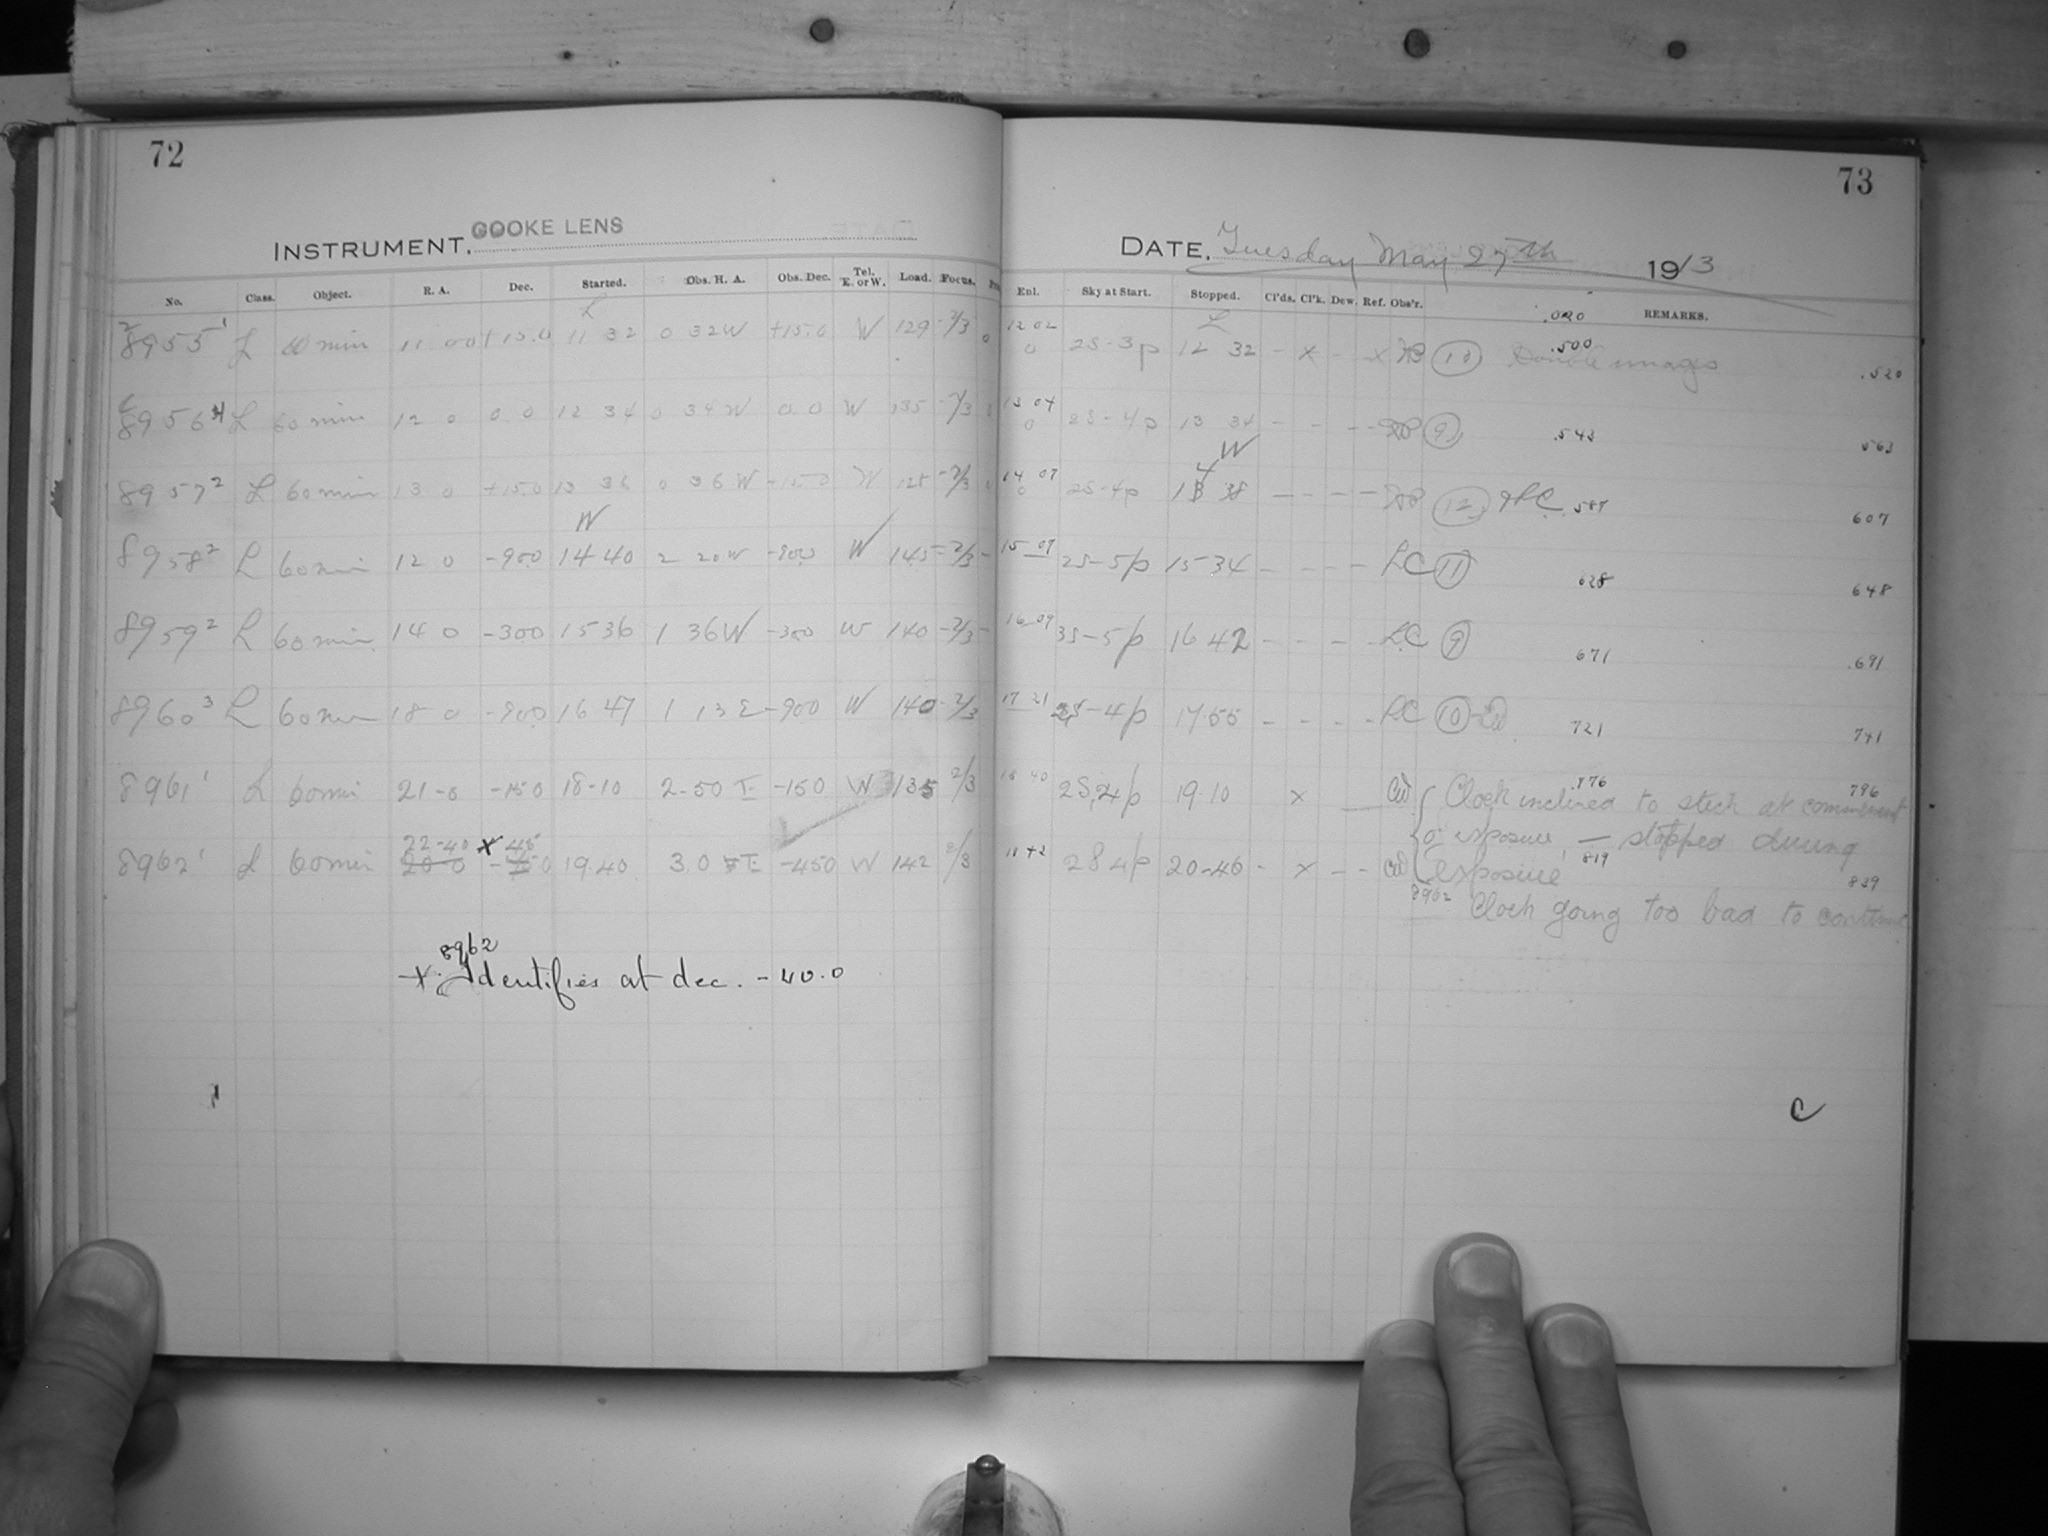 72
73
INSTRUMENT, COOKE LENS
DATE, Tuesday May 27th 1913
No. Class. Object. R. A. Dec. Started. Obs. H. A. Obs. Dec. Tel. E. or W. Load. Focus.
Enl. Sky at Start. Stopped. Cl'ds. Cl'k. Dew. Ref. Obs'r. REMARKS.
.020
8955 1 L 60 min 11 00 +15.0 11 32 0 32 W +15.0 W 129 -2/3 0
12 02 0 2S-3p 12 32 - x - x (10) .500 Double images .520
8956 4 L 60 min 12 0 0.0 12 34 0 34 W 0.0 W 135 -2/3
13 04 0 2S-4p 13 34 - - - - (9) .543 563
8957 2 L 60 min 13 0 +15.0 13 36 0 36 W +15.0 W 125 -2/3
14 07 0 2S-4p 14 38 - - - - (12) LC .587 607
8958 2 L 60 min 12 0 -900 14 40 2 20 W -900 W 145 -2/3 -
15 09 2S-5p 15 34 - - - - LC (11) 628 648
8959 2 L 60 min 14 0 -300 15 36 1 36 W -300 W 140 -2/3 -
16 09 3S-5p 16 42 - - - - LC (9) 671 .691
8960 3 L 60 min 18 0 -900 16 47 1 13 E -900 W 140 -2/3
17 21 -4p 17.55 - - - - LC (10) 721 741
8961 1 L 60 min 21-0 -150 18-10 2-50 E -150 W 135 2/3
18 40 2S,4p 19.10 x CW Clock inclined to stick at commencemt .776 796
22-40 x 45
8962 1 L 60 min 20 0 19.40 3.0 E -450 W 142 2/3
2S 4p 20-46 - x - - CW of exposure — stopped during
exposure 819 839
8962 Clock going too bad to continue
8962
x Identifies at dec. -40.0
C